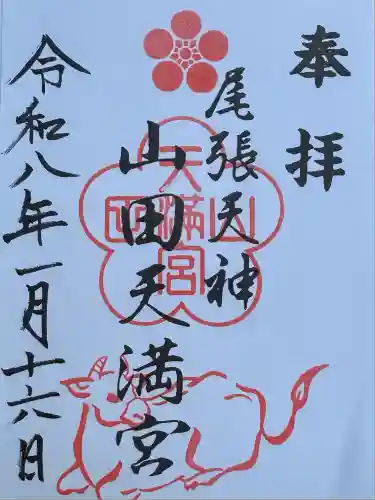 奉拝
尾張天神
山田天満宮
天満宮
山田
令和八年一月十六日